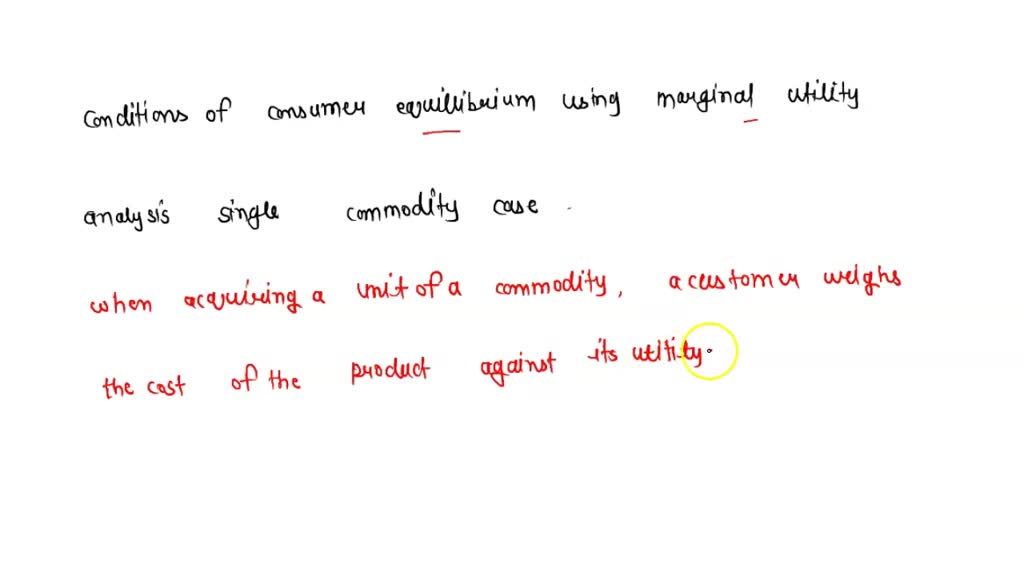 conditions of consumer equilibrium using marginal utility
analysis single commodity case.
when acquiring a unit of a commodity, a customer weighs
the cost of the product against its utility.